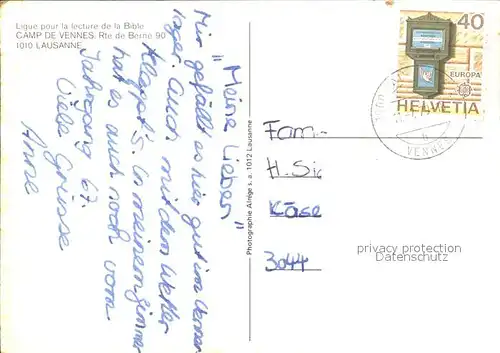 Ligue pour la lecture de la Bible
CAMP DE VENNES, Rte de Berne 90
1010 LAUSANNE
"Meine Lieben"
Mir gefällt es hier gut im Vennes
lager. Auch mit dem Wetter
klappt's. In meinem Zimmer
hat es auch noch vom
Jahrgang 67.
Viele Grüsse
Anne
Photographie Alrège s. a. 1012 Lausanne
40
EUROPA
HELVETIA
VENNES
Fam.
H. Sie
Käse
3044
privacy protection
Datenschutz